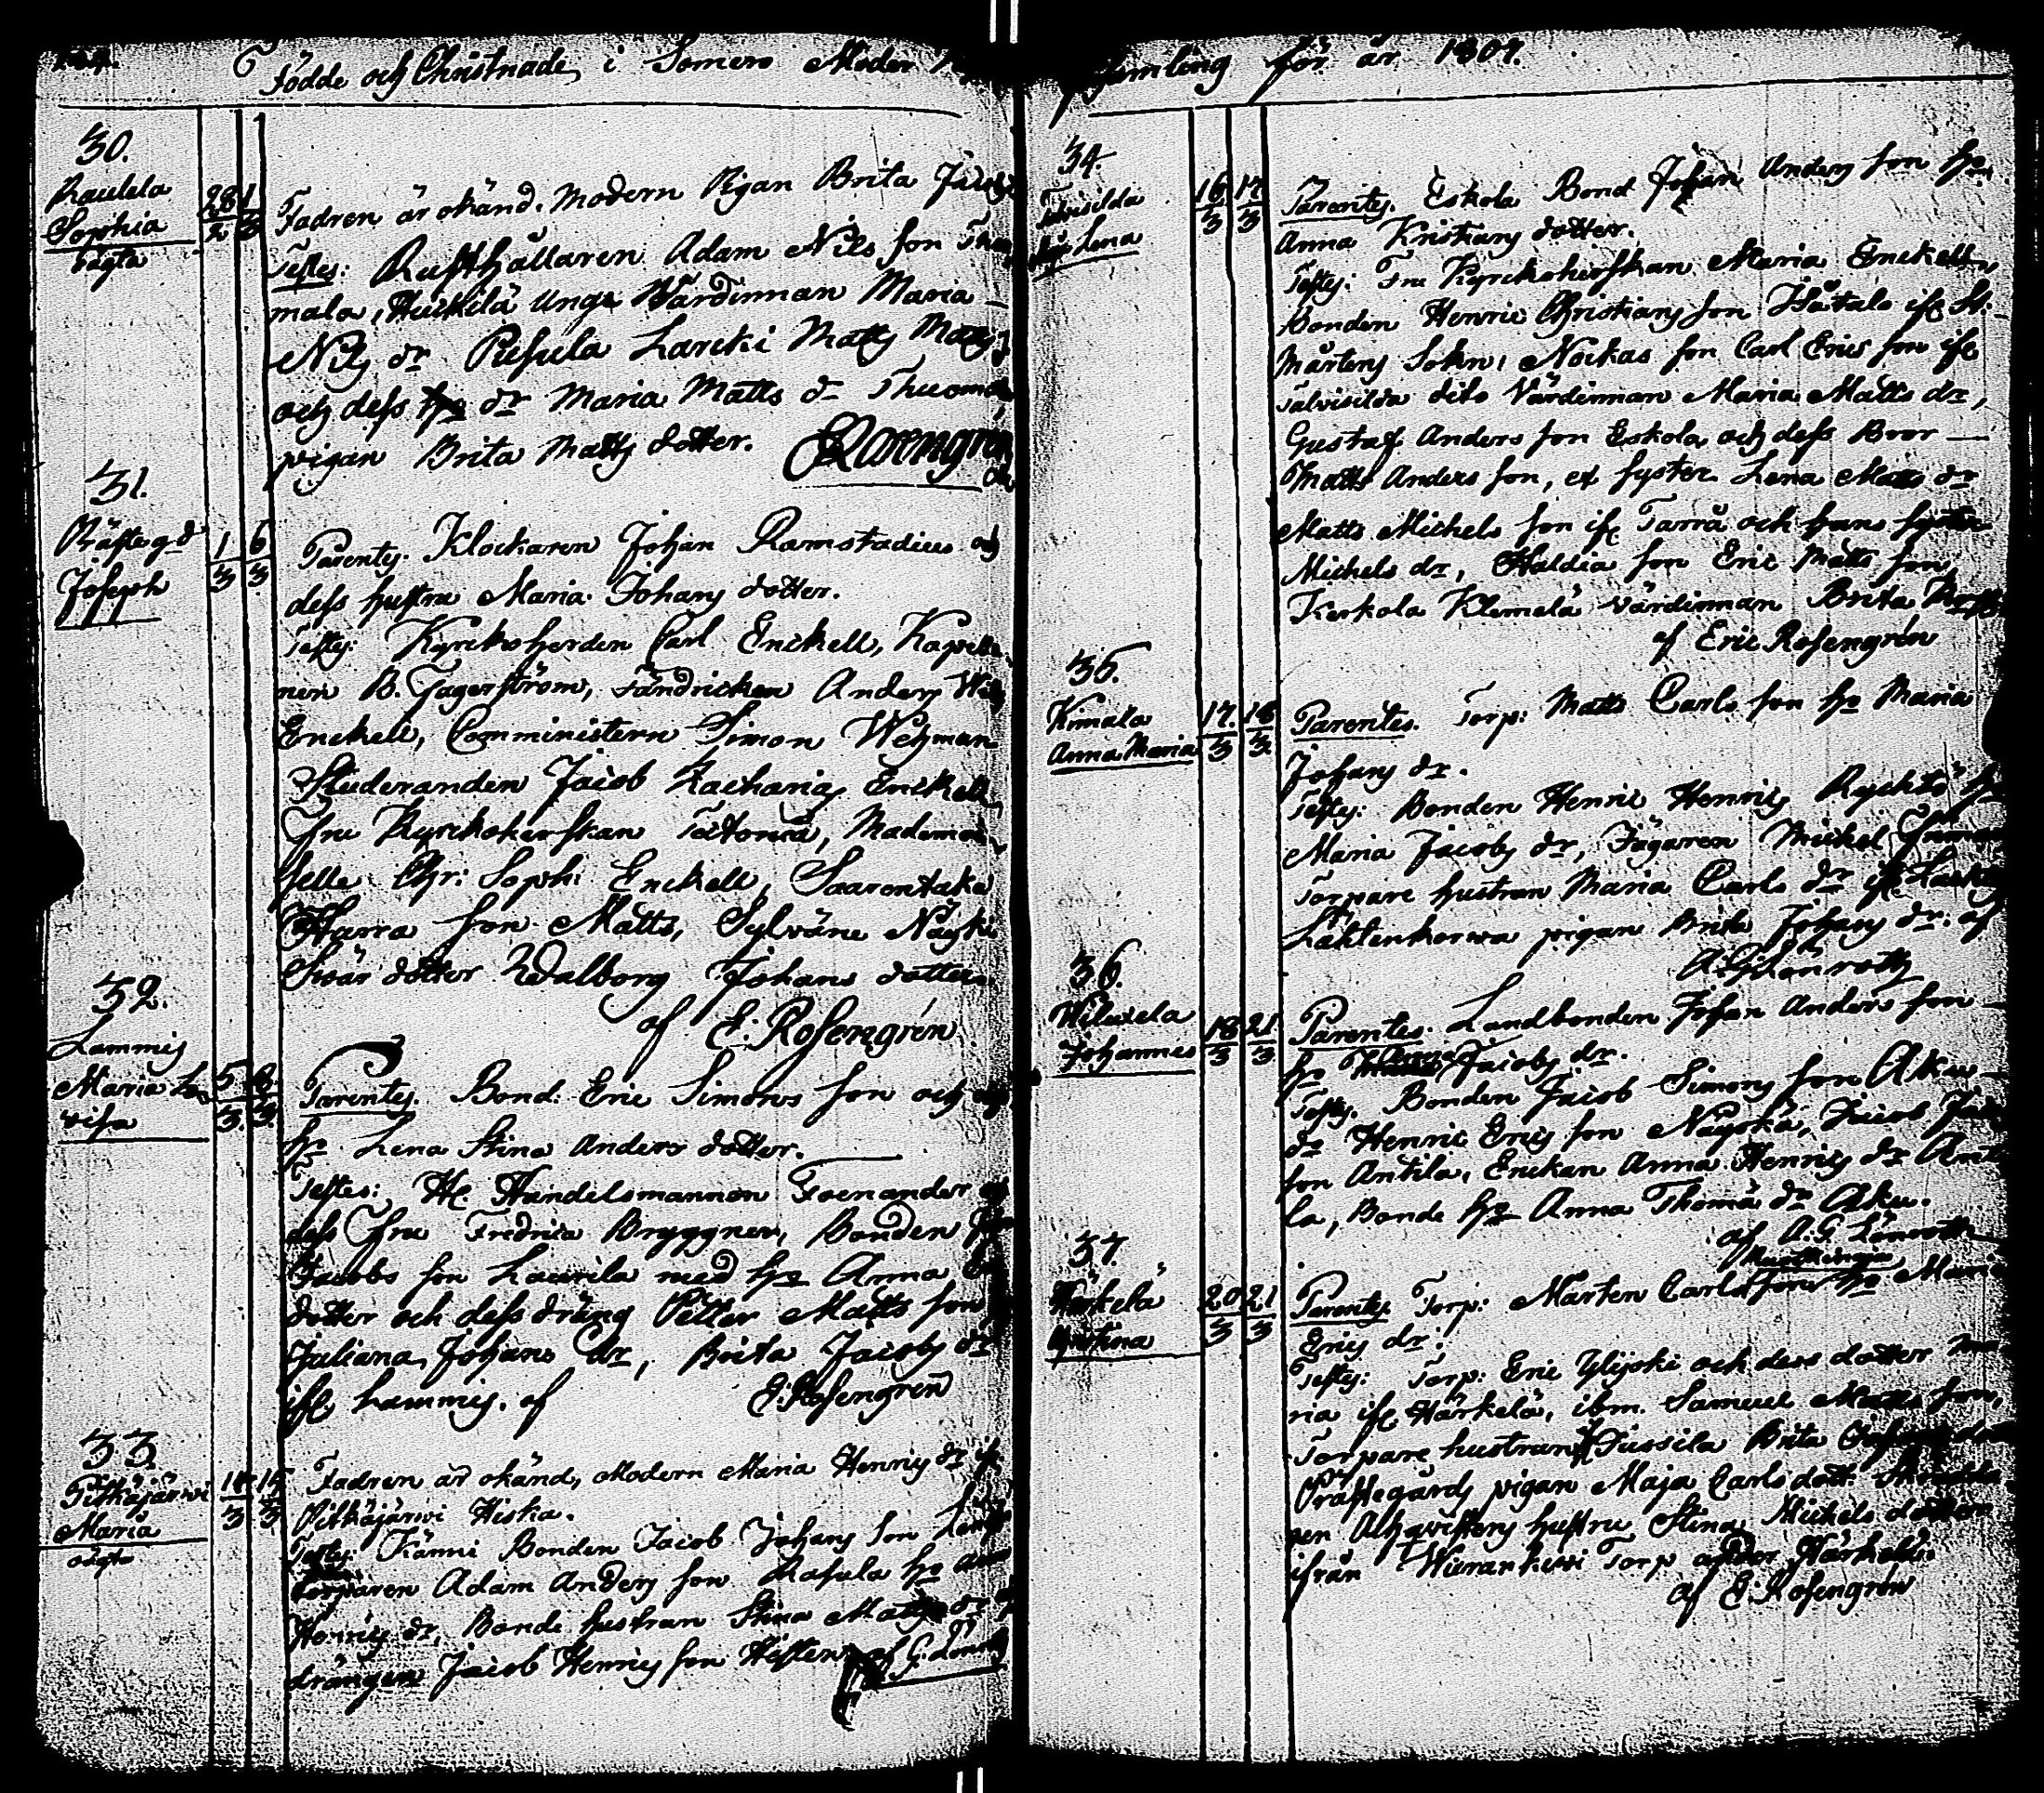 Födde och Christnade i Somero Moder
30.
Raulela
Sophia
oägta
28/2 1/3
Fadren är okänd. Modern Pigan Brita
Testes: Rusthållaren Adam Nils son
mala, Heikilä unga Wärdinnan Maria
Nils dr Pusula Larcki Matts Matts
och dess dr Maria Matts dr Thuoma
pigan Brita Matts dotter. E Rosengren
31.
Prästegd
Joseph
1/3 6/3
Parentes. Klockaren Johan Ramstadius och
dess hustru Maria Johans dotter.
Testes: Kyrckoherden Carl Enckell, Kapella
nen B. Fagerström, Fändricken Anders
Enckell, Comministern Simon Wehman
Studeranden Jacob Zacharias Enckell,
Fru Kyrckoherskan Mademoi
selle Chr: Soph: Enckell, Saarentaka
Harra son Matts, Sylväne
Svär dotter Walborg Johans dotter.
af E: Rosengrén
32.
Lammis
Maria Lo
visa
5/3 8/3
Parentes. Bond: Eric Simons son och
ho Lena Stina Anders dotter.
Testes: Handelsmannen Foenander och
dess Fru Fredrica Bryggner, Bonden
Jacobs son Laurila med ho Anna
dotter och dess dräng Petter Matts son
Juliana Johans dr, Brita Jacobs dr
ifr Lammis. af E: Rosengren
33.
Pitkäjärwi
Maria
oägta
14/3 15/3
Fadren är okänd, Modern Maria Henrics dr ifr
Pitkäjärwi Hiska.
Testes: Känni Bonden Jacob Johans son
Torparen Adam Anders son Rasula ho
Henrics dr, Bonde hustrun Stina Matts dr
drängen Jacob Henrics son af G: Lönroth
samling för år 1807.
34.
Talvisilda
Lena
16/3 17/3
Parentes. Eskola Bond Johan Anders son ho
Anna Kristians dotter.
Testes: Fru Kyrckoherskan Maria Enckell,
Bonden Henric Christians son Isätalo ifr St:
Mårtens Sokn, Nockas son Carl Erics son ifr
Talvisilda dito Värdinnan Maria Matts dr,
Gustaf Anders son Eskola och dess Bror
Matts Anders son, et syster Lena Matts dr
Matts Michels son ifr Tarra och hans syster
Michels dr, Haldia son Eric Matts son,
Kerkola Klemelä Värdinnan Brita
af Eric Rosengrén
35.
Kimala
Anna Maria
17/3 18/3
Parentes. Torp: Matts Carls son ho Maria
Johans dr.
Testes: Bonden Henric Henrics Ryhtö ho
Maria Jacobs dr, Jägaren Mickel
Torpare hustrun Maria Carls dr ifr
Lahtenkorwa pigan Brita Johans dr. af
A: G: Lönroth
36.
Wiluxela
Johannes
18/3 21/3
Parentes. Landbonden Johan Anders son
ho Anna Jacobs dr.
Testes. Bonden Jacob Simons son Aku
dr Henric Erics son Näyskä, Jacob
son Antila, Enckan Anna Henrics dr Anti
la, Bonde ho Anna Thomä dr Aku.
af A. G. Lönroth
37.
Härkelä
Christina
20/3 21/3
Parentes Torp: Mårten Carls son ho
Erics dr:
Testes: Torp: Eric Ylijoki och dess dotter Ma
ria ifr Härkelä, ibm. Samuel Matts son,
Torpare hustrun Jussila Brita
Prästegårds pigan Maja Carls dott.
hustru Stina Mickels dotter
ifrån Wierankivi Torp under Härkelä.
af E: Rosengrén